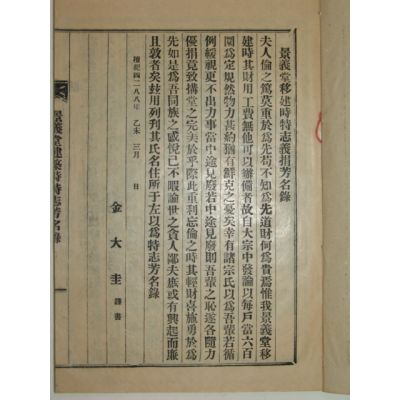 景義堂移建時特志義捐芳名錄
夫人倫之篤莫重於爲先苟不知爲先道財何爲貴焉惟我景義堂移
建時其財用工費無他可以辦備者故自大宗中發論以每戶當六百
圜爲定規然物力甚約猶有鮮克之憂矣幸有諸宗氏以爲吾輩若循
例緩視更不出力事當中途見廢若中途見廢則吾輩之恥遂各隨力
優捐竟致搆堂之完美於乎際此重利忘倫之時其輕財喜施勇於爲
先如是爲吾同族之感悅已不暇論世之貪人鄙夫庶或有興起而廉
且敦者矣玆用列刊其氏名住所于左以爲特志芳名錄
檀紀四二八八年乙未三月 日
金大圭 謹書
景義堂建築時特志芳名錄